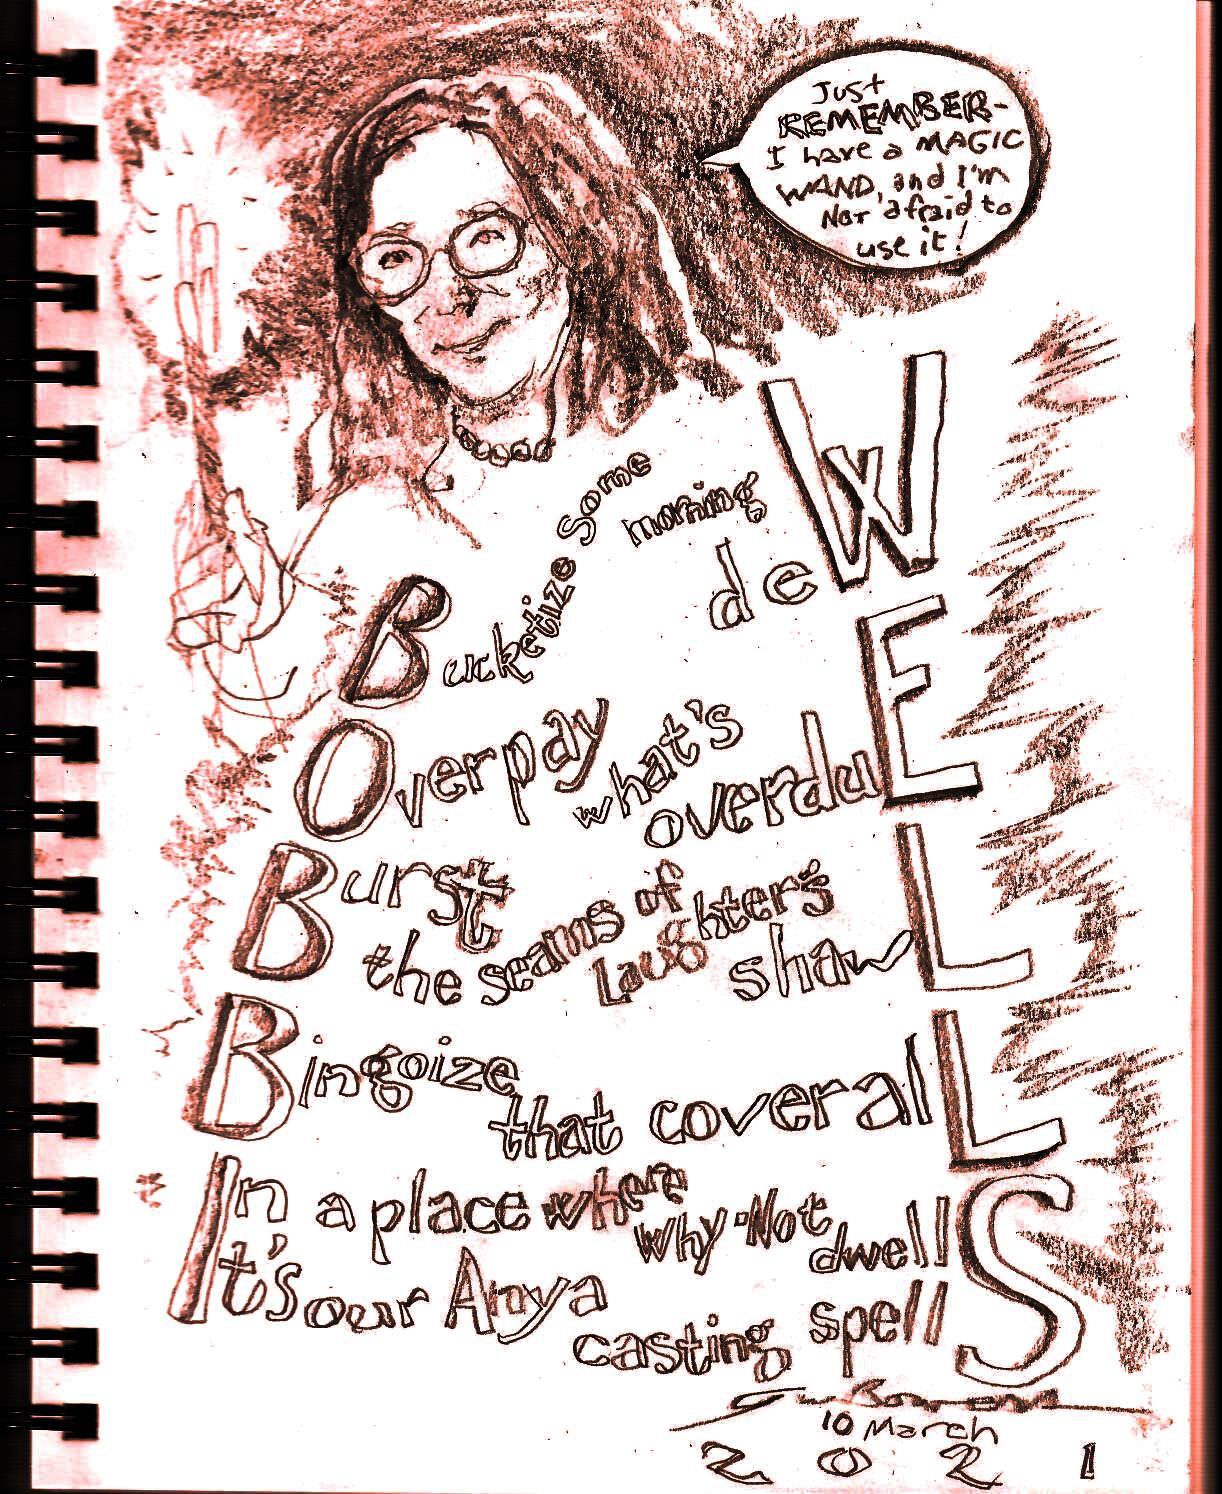 Just
REMEMBER-
I have a MAGIC
WAND, and I'm
Not afraid to
use it!
Bucketize some morning deW
Overpay what's overduE
Burst the seams of laughter's shawL
Bingoize that coveralL
In a place where why-Not dwellS
It's our Anya casting spellS
10 March
2021